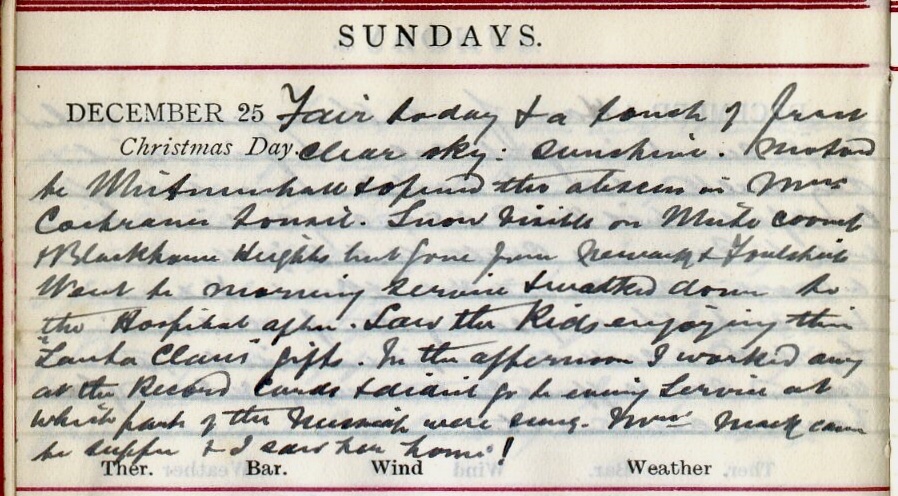 SUNDAYS.
DECEMBER 25 Fair today & a touch of frost
Christmas Day. clear sky: sunshine. Motored
to Whitmuirhall & opened the abscess in Mrs
Cochranes tonsil. Snow visible on
& Heights but gone from Newark & Foulshiels
Went to morning service & walked down to
the Hospital after. Saw the Kids enjoying their
"Santa Claus" gifts. In the afternoon I worked away
at the Record Cards & didnt go to evening Service at
which parts of the Messiah were sung. Mrs Mack came
to supper & I saw her home!
Ther. Bar. Wind Weather